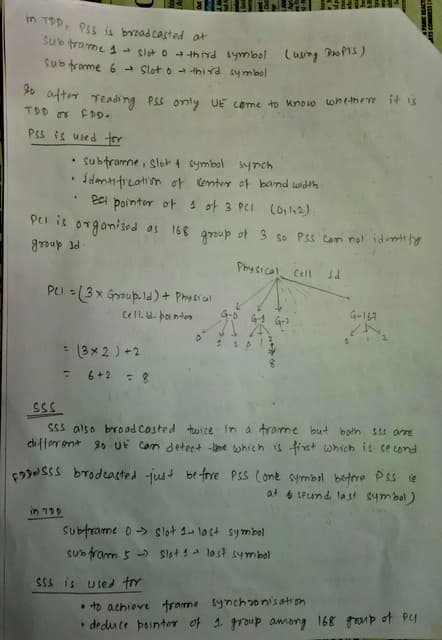 in TDD, PSS is broadcasted at
Subframe 1 → Slot 0 → third symbol (using DwPTS)
Subframe 6 → Slot 0 → third symbol
So after reading PSS only UE come to know whethere it is
TDD or FDD.
PSS is used for
• subframe, slot & symbol synch
• Identification of center of band width
• pointer of 1 of 3 PCI (0,1,2)
PCI is organised as 168 group of 3 so PSS can not identify
group Id.
Physical Cell Id
PCI = (3 x Group Id) + Physical
Cell id pointer
G-0 G-1 G-2 G-167
0 1 2 0 1 2 0 1 2
8
= (3 x 2) + 2
= 6+2 = 8
SSS
SSS also broadcasted twice in a frame but both SSS are
different so UE can detect which is first which is second
(FDD) SSS brodcasted just before PSS (one symbol before PSS ie
at second last symbol)
in TDD
Subframe 0 → Slot 1 → last symbol
subfram 5 → Slot 1 → last symbol
SSS is used for
• to achieve frame synchronisation
• deduce pointer of 1 group among 168 group of PCI